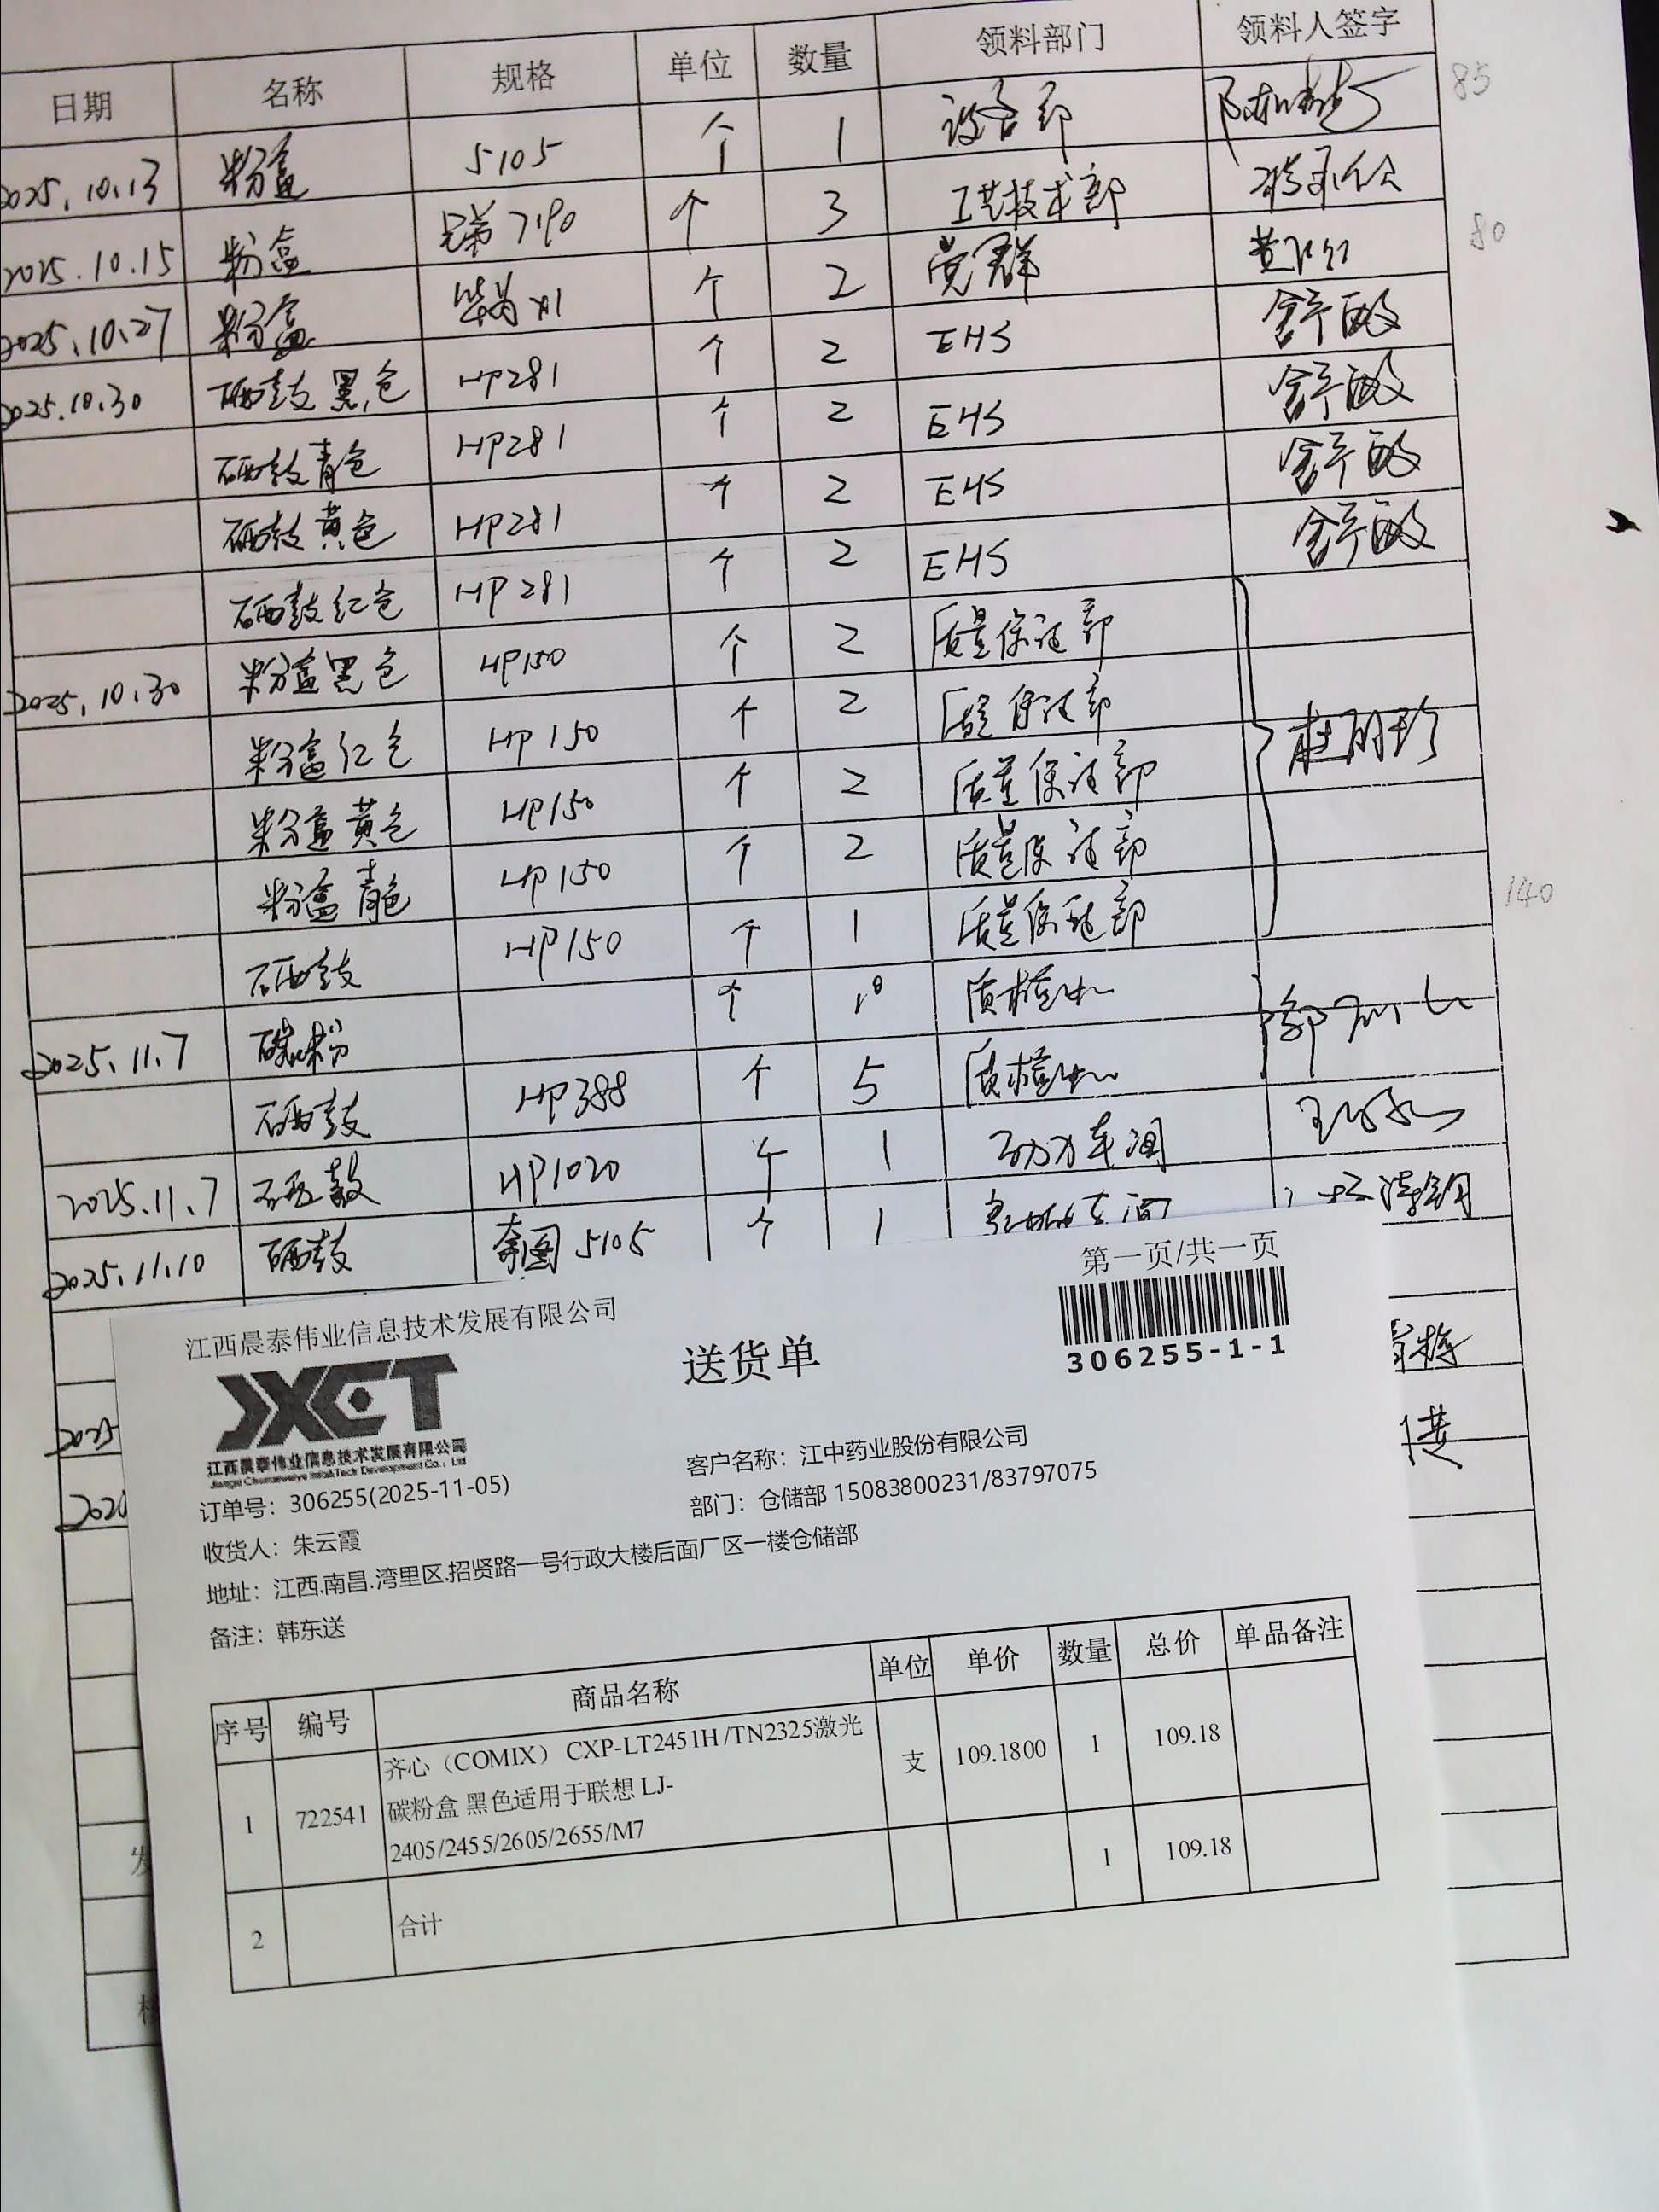 日期 名称 规格 单位 数量 领料部门 领料人签字
85
2025.10.13 粉盒 5105 个 1 设备部
2025.10.15 粉盒 兄弟7190 个 3 工艺技术部
80
2025.10.27 粉盒 华为X1 个 2 党群
2025.10.30 硒鼓黑色 HP281 个 2 EHS
硒鼓青色 HP281 个 2 EHS
硒鼓黄色 HP281 个 2 EHS
硒鼓红色 HP281 个 2 EHS
2025.10.30 粉盒黑色 HP150 个 2 质量保证部
粉盒红色 HP150 个 2 质量保证部
粉盒黄色 HP150 个 2 质量保证部
粉盒青色 HP150 个 2 质量保证部
140
硒鼓 HP150 个 1 质量保证部
2025.11.7 碳粉 个 10
硒鼓 HP388 个 5
2025.11.7 硒鼓 HP1020 个 1 动力车间
2025.11.10 硒鼓 奔图5105 个 1
2025
2020
江西晨泰伟业信息技术发展有限公司
第一页/共一页
送货单
306255-1-1
JXCT
江西晨泰伟业信息技术发展有限公司
订单号：306255(2025-11-05)
客户名称：江中药业股份有限公司
收货人：朱云霞
部门：仓储部 15083800231/83797075
地址：江西.南昌.湾里区.招贤路一号行政大楼后面厂区一楼仓储部
备注：韩东送
序号 编号 商品名称 单位 单价 数量 总价 单品备注
1 722541 齐心（COMIX） CXP-LT2451H /TN2325激光
碳粉盒 黑色适用于联想 LJ-
2405/2455/2605/2655/M7
支 109.1800 1 109.18
2 合计 1 109.18